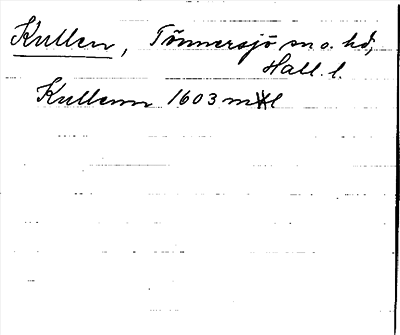 Kullen, Tönnersjö sn o. hd,
Hall. l.
Kullenn 1603 mtl